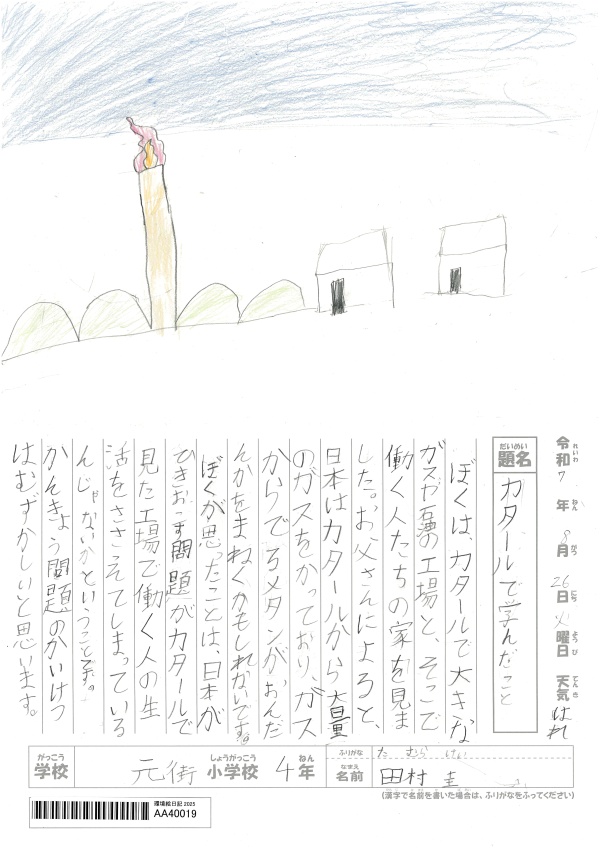 令和7年8月26日火曜日 天気はれ
れいわ ねん がつ にち ようび てんき
だいめい
題名 カタールで学んだこと
ぼくは、カタールで大きな
ガスや石油の工場と、そこで
働く人たちの家を見ま
した。お父さんによると、
日本はカタールから大量
のガスをかっており、ガス
からでるメタンがおんだ
んかをまねくかもしれないです。
ぼくが思ったことは、日本が
ひきおこす問題がカタールで
見た工場で働く人の生
活をささえてしまっている
んじゃないかということです。
かんきょう問題のかいけつ
はむずかしいと思います。
がっこう しょうがっこう ねん
学校 元街小学校 4年
ふりがな たむら けい
なまえ
名前 田村 圭
(漢字で名前を書いた場合は、ふりがなをふってください)
環境絵日記 2025
AA40019